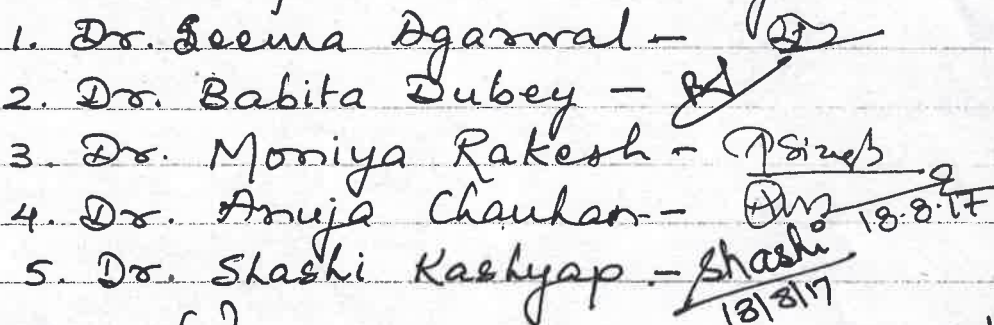 1. Dr. Seema Agarwal -
2. Dr. Babita Dubey - BD
3. Dr. Moniya Rakesh - Singh
4. Dr. Anuja Chauhan - 18.8.17
5. Dr. Shashi Kashyap - Shashi
18/8/17